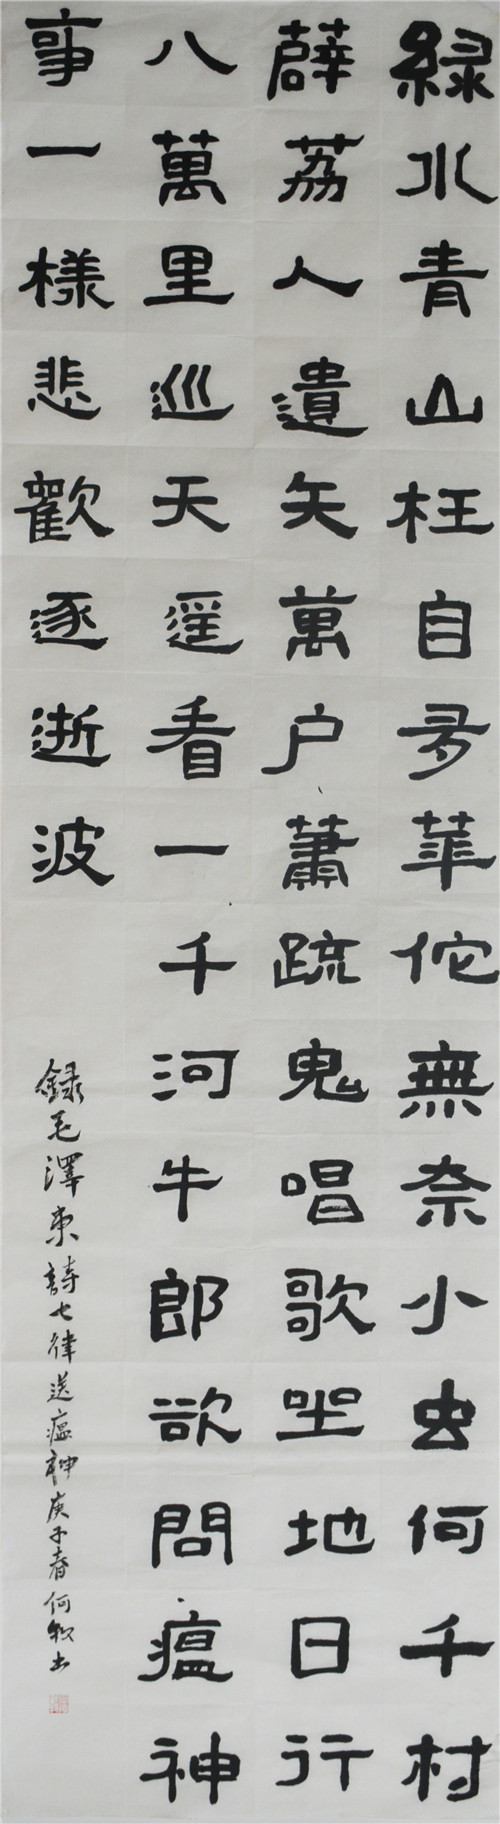 緑水青山枉自多華佗無奈小虫何千村
薜荔人遺矢萬户蕭疏鬼唱歌坐地日行
八萬里巡天遥看一千河牛郎欲問瘟神
事一樣悲歡逐逝波
録毛澤東詩七律送瘟神庚子春何牧书